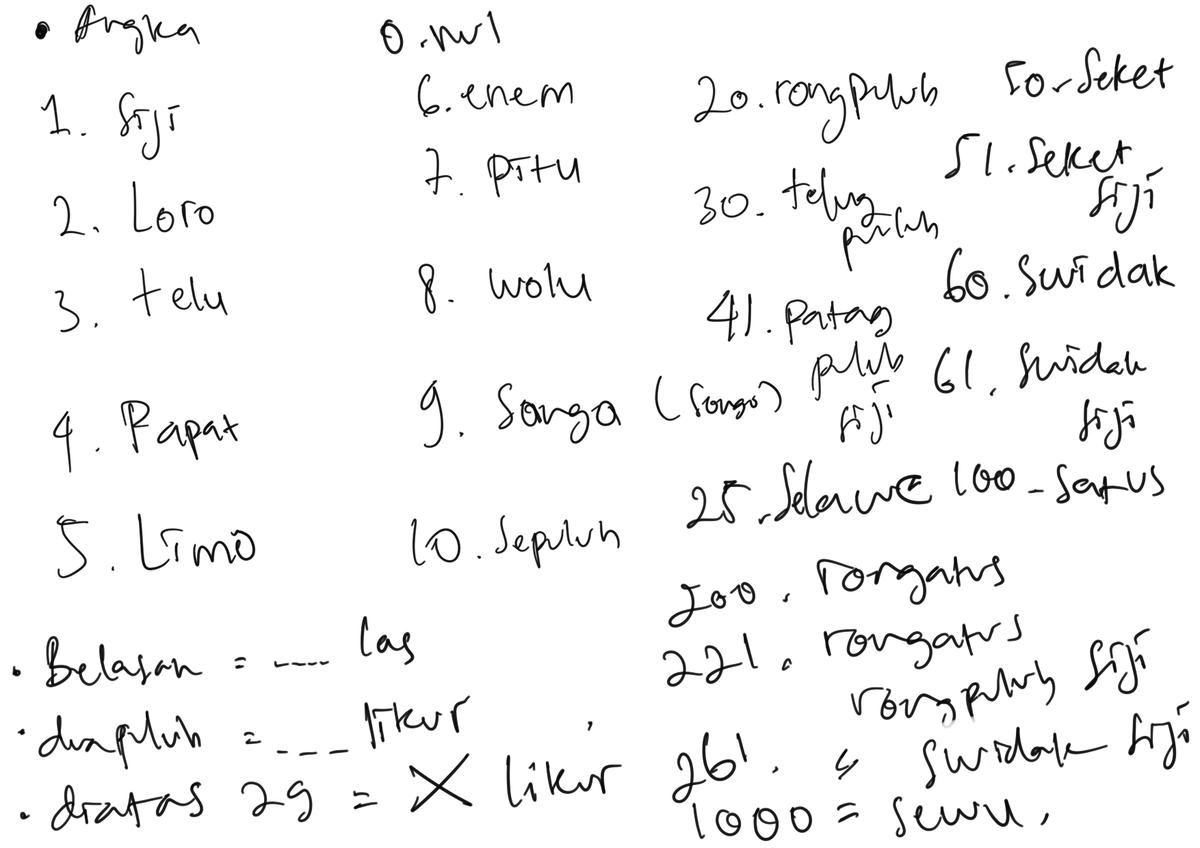 • Angka
1. siji
2. Loro
3. telu
4. Papat
5. Limo
0. nul
6. enem
7. pitu
8. wolu
9. Sanga (songo)
10. Sepuluh
20. rongpuluh
30. telung
puluh
41. patag
puluh
siji
25. Selawe
50. Seket
51. Seket
siji
60. Swidak
61. Swidak
siji
100 - Satus
200. rongatus
221. rongatus
rongpuluh siji
261. " swidak siji
1000 = sewu.
• Belasan = ---- las
• duapuluh = --- likur
• diatas 29 = X likur